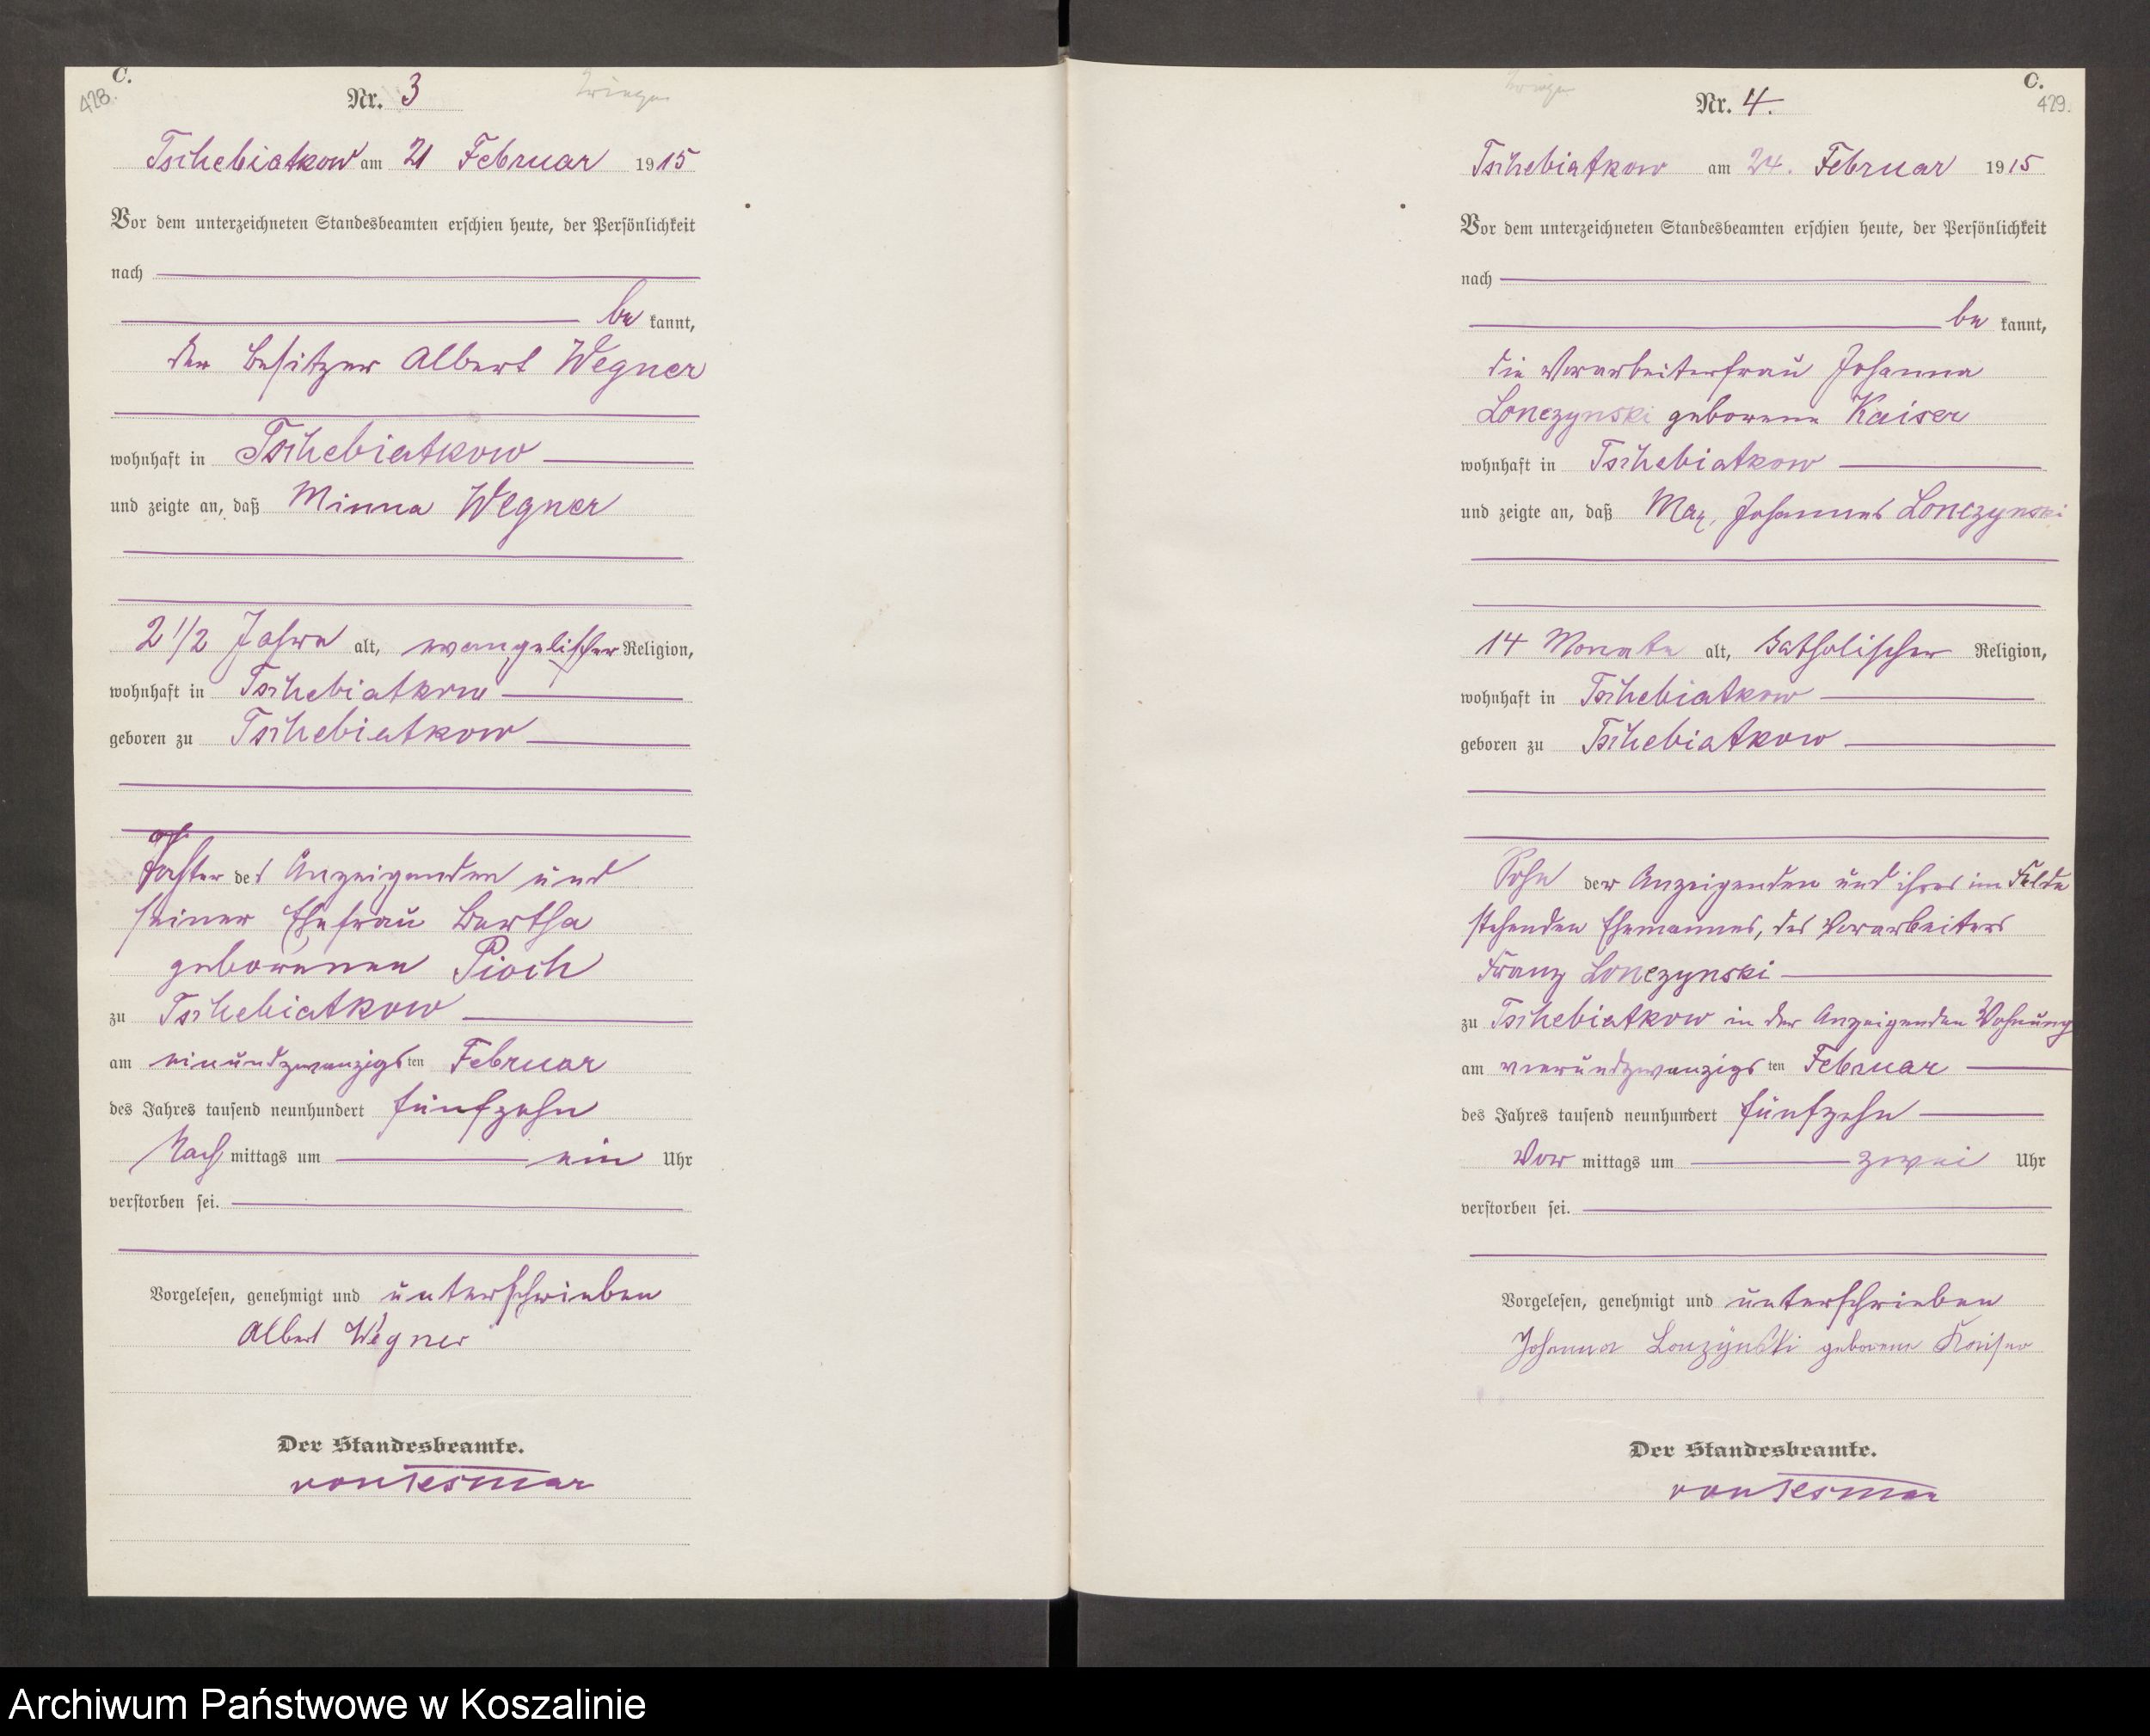 C.
428.
Nr. 3
Tschebiatkow am 21 Februar 1915
Vor dem unterzeichneten Standesbeamten erschien heute, der Persönlichkeit
nach
be kannt,
der Besitzer Albert Wegner
wohnhaft in Tschebiatkow
und zeigte an, daß Minna Wegner
2 1/2 Jahre alt, evangelischer Religion,
wohnhaft in Tschebiatkow
geboren zu Tschebiatkow
Tochter des Anzeigenden und
seiner Ehefrau Bertha
geborenen Pioch
zu Tschebiatkow
am einundzwanzigsten Februar
des Jahres tausend neunhundert fünfzehn
Nach mittags um ein Uhr
verstorben sei.
Vorgelesen, genehmigt und unterschrieben
Albert Wegner
Der Standesbeamte.
von Tesmar
C.
429.
Nr. 4.
Tschebiatkow am 24. Februar 1915
Vor dem unterzeichneten Standesbeamten erschien heute, der Persönlichkeit
nach
be kannt,
die Vorarbeiterfrau Johanna
Lonczynski geborene Kaiser
wohnhaft in Tschebiatkow
und zeigte an, daß Max, Johannes Lonczynski
14 Monate alt, katholischer Religion,
wohnhaft in Tschebiatkow
geboren zu Tschebiatkow
Sohn der Anzeigenden und ihres im Felde
stehenden Ehemannes, des Vorarbeiters
Franz Lonczynski
zu Tschebiatkow in der Anzeigenden Wohnung
am vierundzwanzigsten Februar
des Jahres tausend neunhundert fünfzehn
Vor mittags um zwei Uhr
verstorben sei.
Vorgelesen, genehmigt und unterschrieben
Johanna Lonzÿnski geborene Kaiser
Der Standesbeamte.
von Tesmar
Archiwum Państwowe w Koszalinie